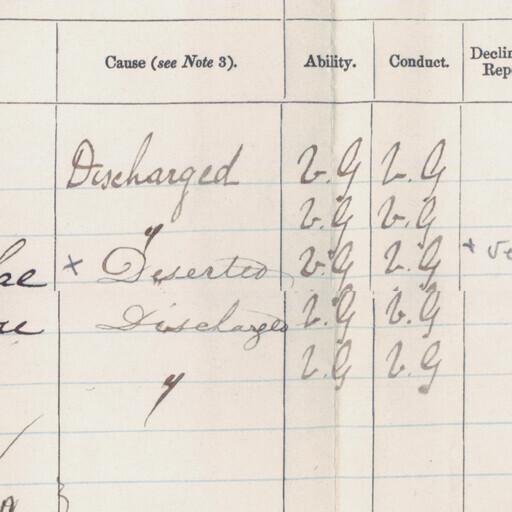 Cause (see Note 3). Ability. Conduct. Declin
Rep
Discharged V.G V.G
" V.G V.G
x Deserted V.G V.G x
Discharged V.G V.G
" V.G V.G